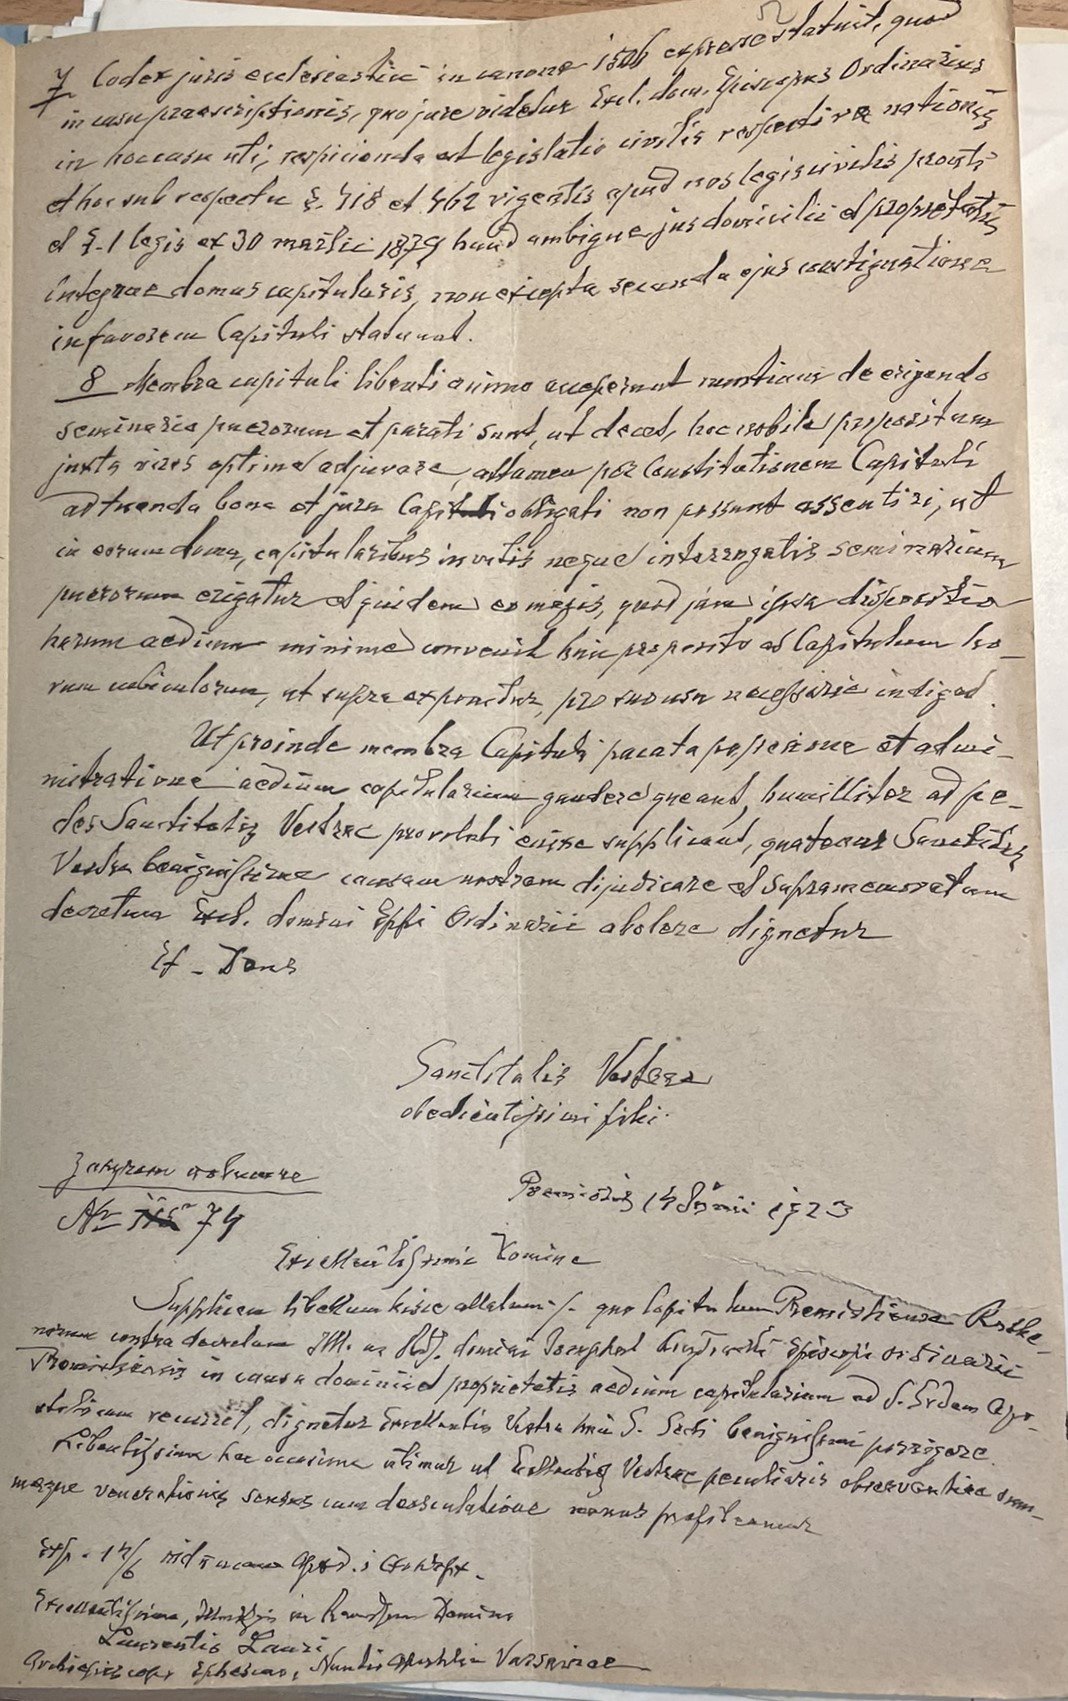 7 Codex juris ecclesiastici in canone 1508 expresse statuit, quod
in casu praescriptionis, quo jure videtur Excl. dom. Episcopus Ordinarius
in hoc casu uti, respicienda est legislatio civilis respectivae nationis
et hoc sub respectu §. 418 et 462 vigentis apud nos legis civilis
et §. 1 legis ex 30 martii 1879 haud ambigue jus domicilii et proprietatis
integrae domus capitularis, non excepta secunda ejus contignatione
in favorem Capituli statuunt.
8 Membra capituli libenti animo acceperunt nuntium de erigendo
seminario puerorum et parati sunt, ut decet, hoc nobile propositum
juxta vires optime adjuvare, attamen per Constitutionem Capituli
ad tuenda bona et jura Capituli obligati non possunt assentiri, ut
in eorum domo, capitularibus invitis neque interrogatis seminarium
puerorum erigatur et quidem eo magis, quod jam ipsa dispositio
harum aedium minime convenit huic proposito et Capitulum ho-
rum cubiculorum, ut supra exponitur, pro suo usu necessarie indiget.
Ut proinde membra Capituli pacata possessione et admi-
nistratione aedium capitularium gaudere queant, humilliter ad pe-
des Sanctitatis Vestrae provoluti enixe supplicant, quatenus Sanctitas
Vestra benignissime causam nostram dijudicare et supramemoratum
decretum Excl. domini Eppi Ordinarii abolere dignetur
Et - Deus
Sanctitatis Vestrae
obedientissimi filii.
Nr 74
Premisliae 14 Junii 1923
Excellentissime Domine
Supplicem libellum hisce allatum ·/· quo Capitulum Premisliense Ruthe-
norum contra decretum Ill. ac Rd. domini Josaphat Episcopi ordinarii
Premisliensis in causa dominii et proprietatis aedium capitularium ad S. Sedem Apo-
stolicam recurrit, dignetur Excellentia Vestra huic S. Sedi benignissime porrigere.
Libentissime hac occasione utimur ut Excellentiae Vestrae peculiaris observantiae sum-
maeque venerationis sensus cum deosculatione manus profiteamur
Exp. 14/6
Excellentissimo, Illmo ac Domino
Laurentio Lauri
Archiepiscopo Ephesino, Nuntio Apostolico Varsaviae